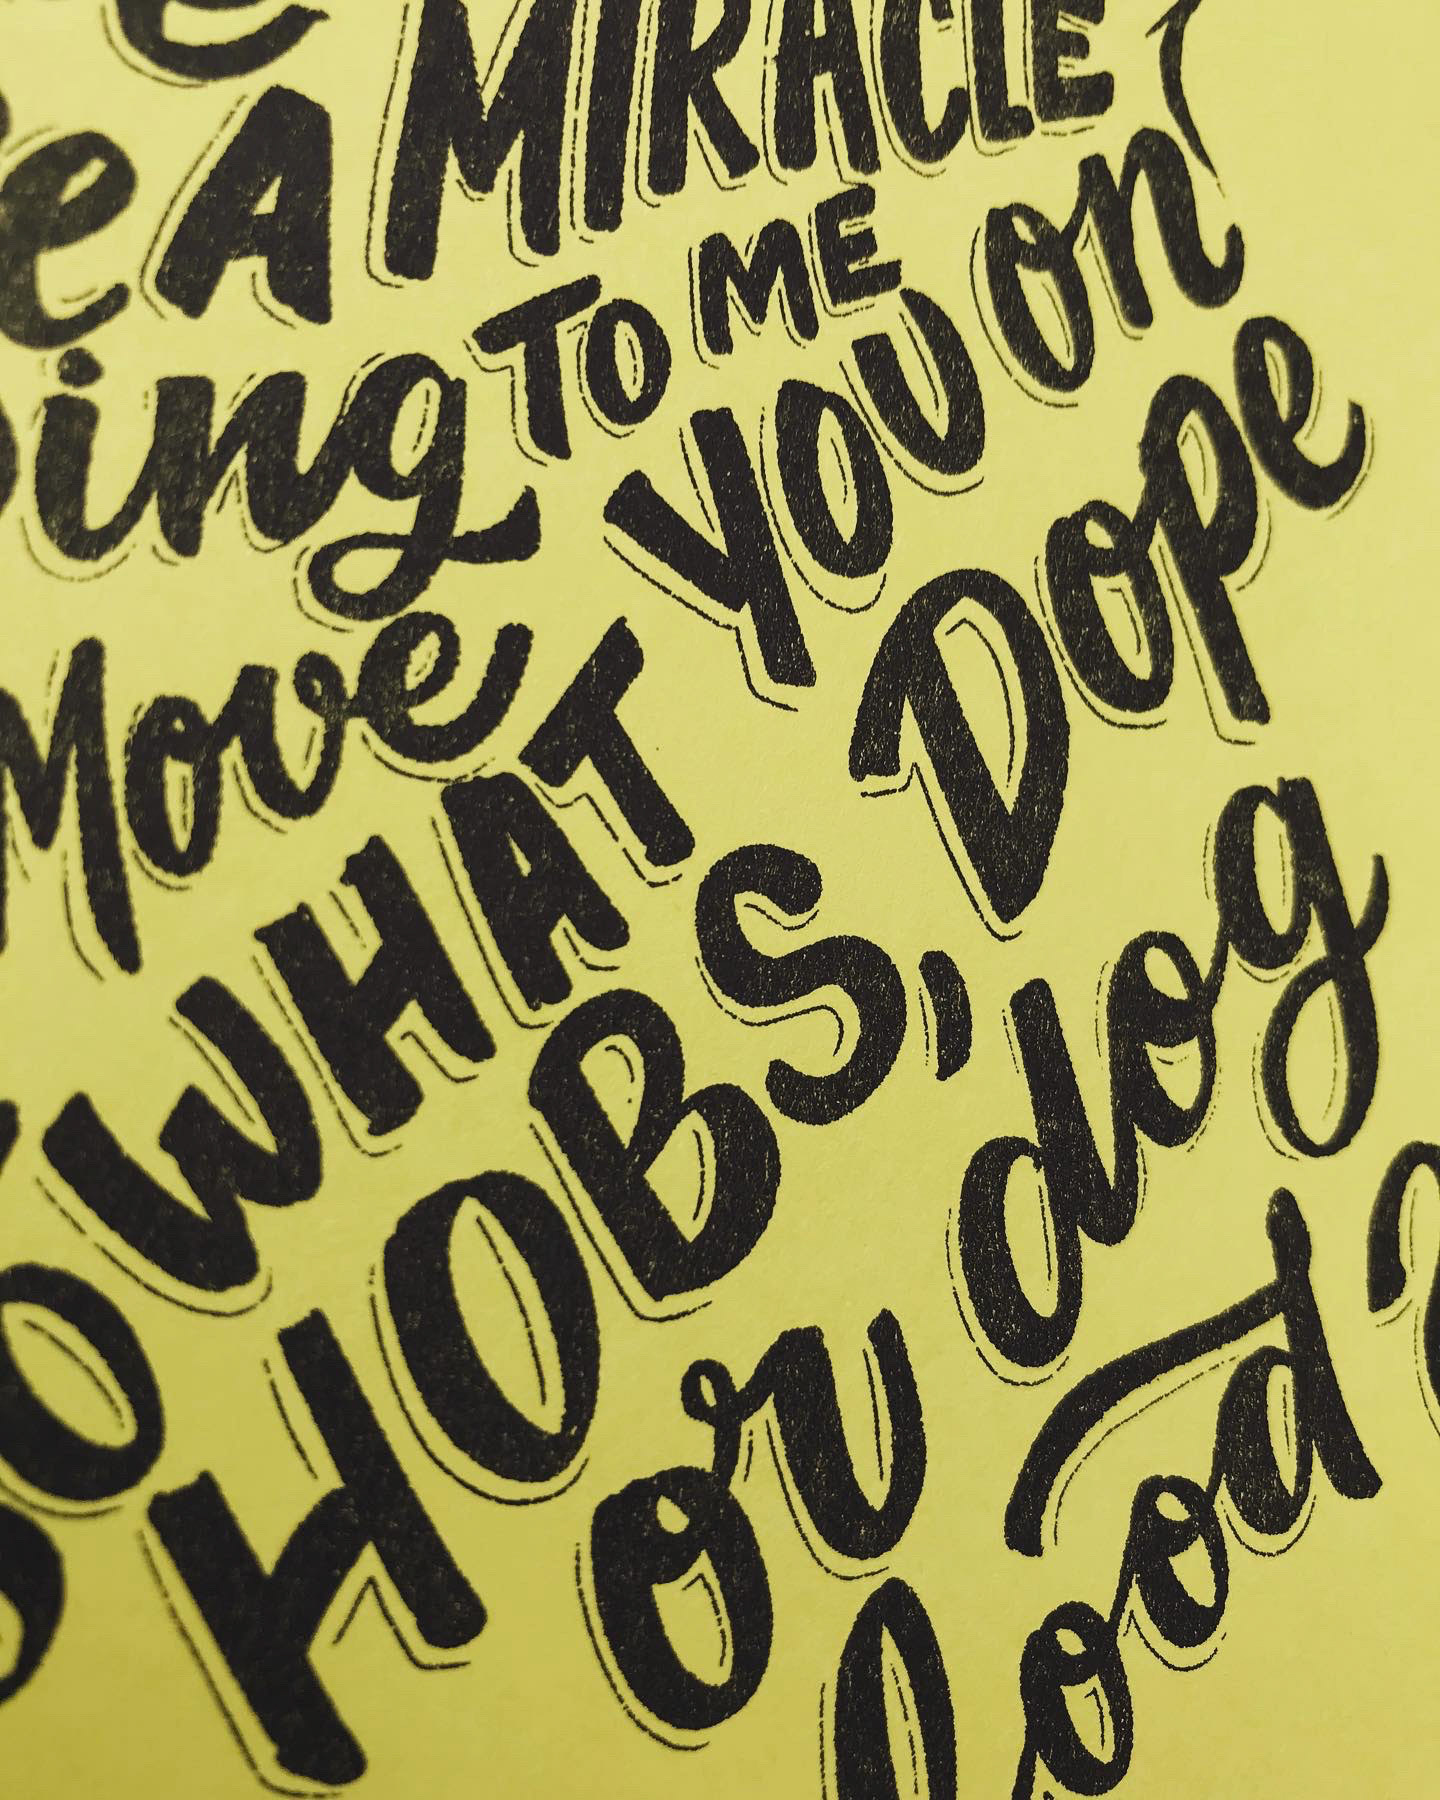 A MIRACLE
ing TO ME
Move YOU on
WHAT Dope
HOBS, dog
or